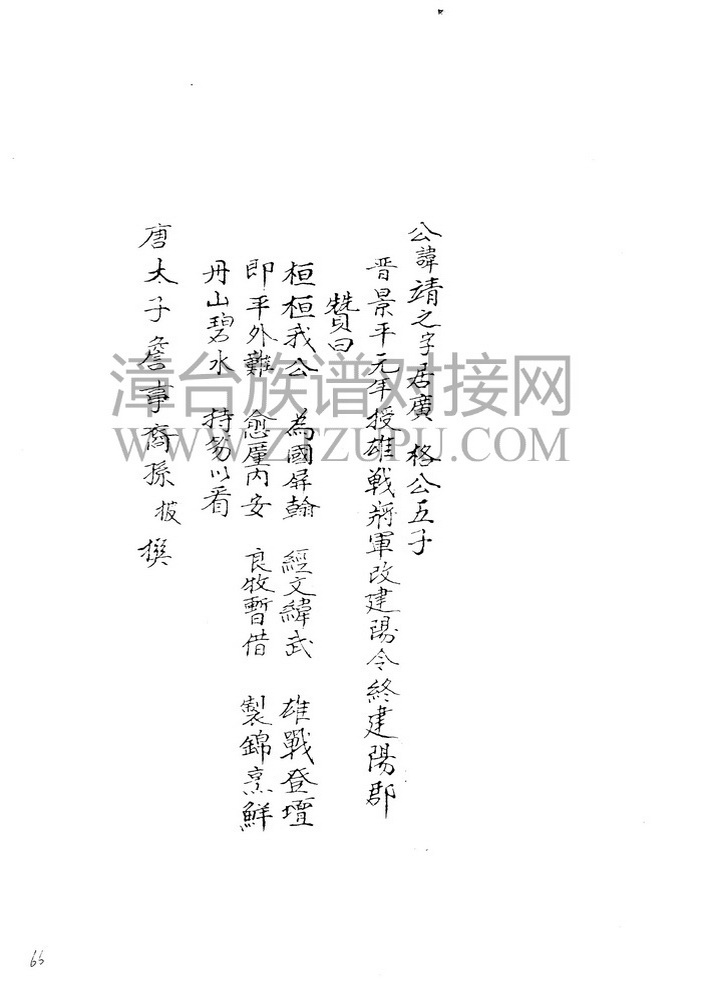 公諱靖之字居廣 格公五子
晋景平元年授雄戰將軍改建陽令終建陽郡
贊曰
桓桓我公 為國屏翰 經文緯武 雄戰登壇
即平外難 愈厪內安 良牧暫借 製錦烹鮮
丹山碧水 持笏以看
唐太子詹事裔孫 披 撰
漳台族谱对接网
WWW.ZTZUPU.COM
66